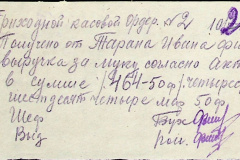 Приходной касовой Ордер. № 2
Получено от Тарана Ивана
выручка за муку согласно Акт
в сумме 464-50 четырес
шестдесят четыре мар 50
Шеф Бух